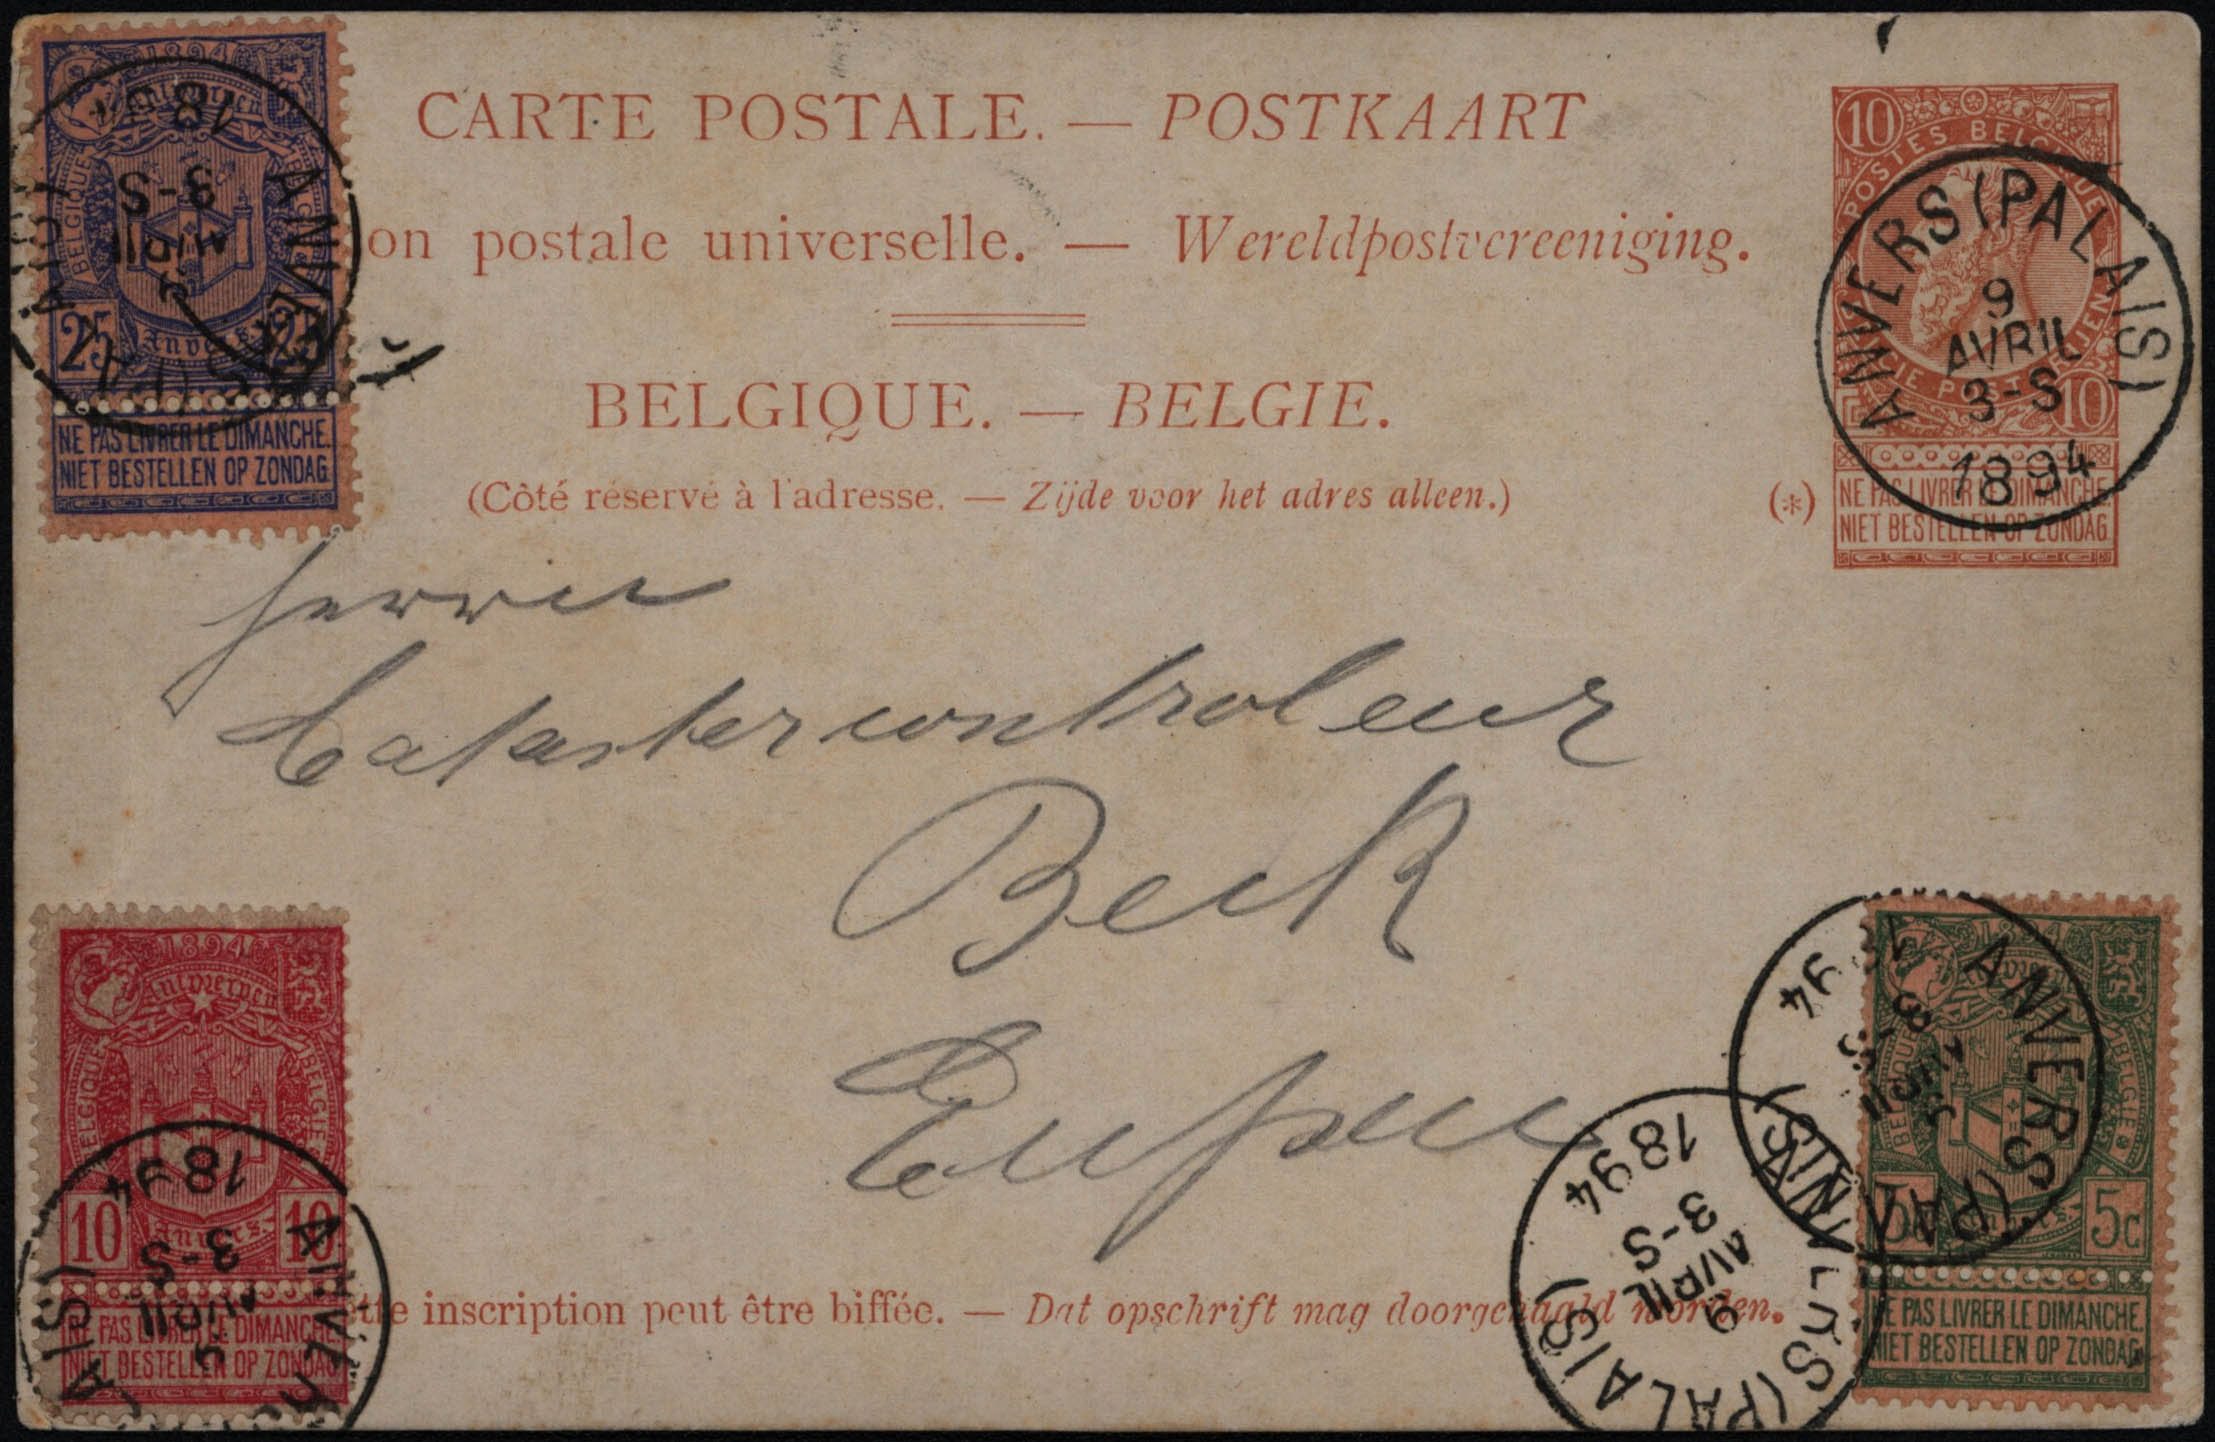 1894
Antwerpen
BELGIQUE
25
25
Anvers
NE PAS LIVRER LE DIMANCHE.
NIET BESTELLEN OP ZONDAG
ANVERS (PALAIS)
9
AVRIL
3-S
1894
CARTE POSTALE. — POSTKAART
on postale universelle. — Wereldpostvereeniging.
BELGIQUE. — BELGIE.
(Côté réservé à l'adresse. — Zijde voor het adres alleen.)
(*)
10
POSTES BELGIQUE
10
NE PAS LIVRER LE DIMANCHE
NIET BESTELLEN OP ZONDAG
ANVERS (PALAIS)
9
AVRIL
3-S
1894
Herrn
Catastercontroleur
Beck
Eupen
1894
Antwerpen
BELGIQUE
BELGIE
10
10
Anvers
NE PAS LIVRER LE DIMANCHE.
NIET BESTELLEN OP ZONDAG
1894
3-S
AVRIL
9
tte inscription peut être biffée. — Dat opschrift mag doorgehaald worden.
ANVERS (PALAIS)
9
AVRIL
3-S
1894
1894
BELGIE
5c
NE PAS LIVRER LE DIMANCHE.
NIET BESTELLEN OP ZONDAG
ANVERS (PA